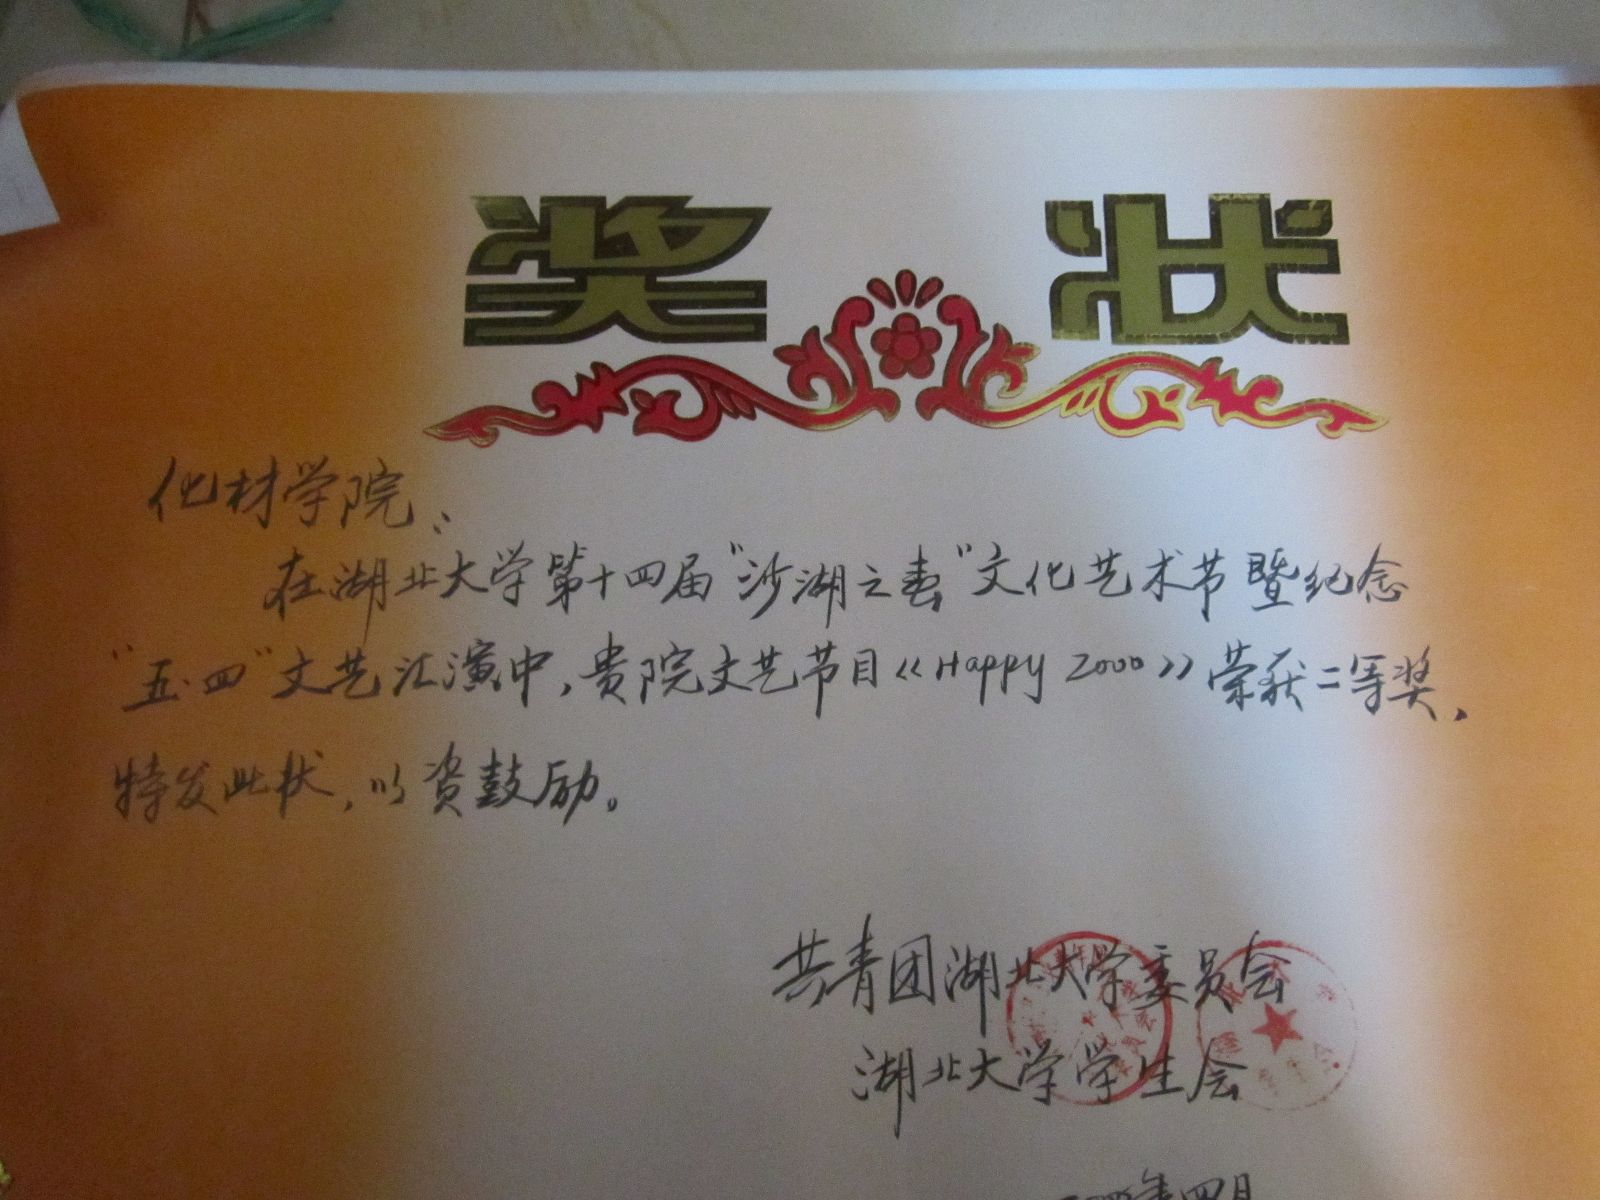 奖状
化材学院：
在湖北大学第十四届“沙湖之春”文化艺术节暨纪念
“五·四”文艺汇演中,贵院文艺节目《Happy 2000》荣获二等奖,
特发此状,以资鼓励。
共青团湖北大学委员会
湖北大学学生会
年四月